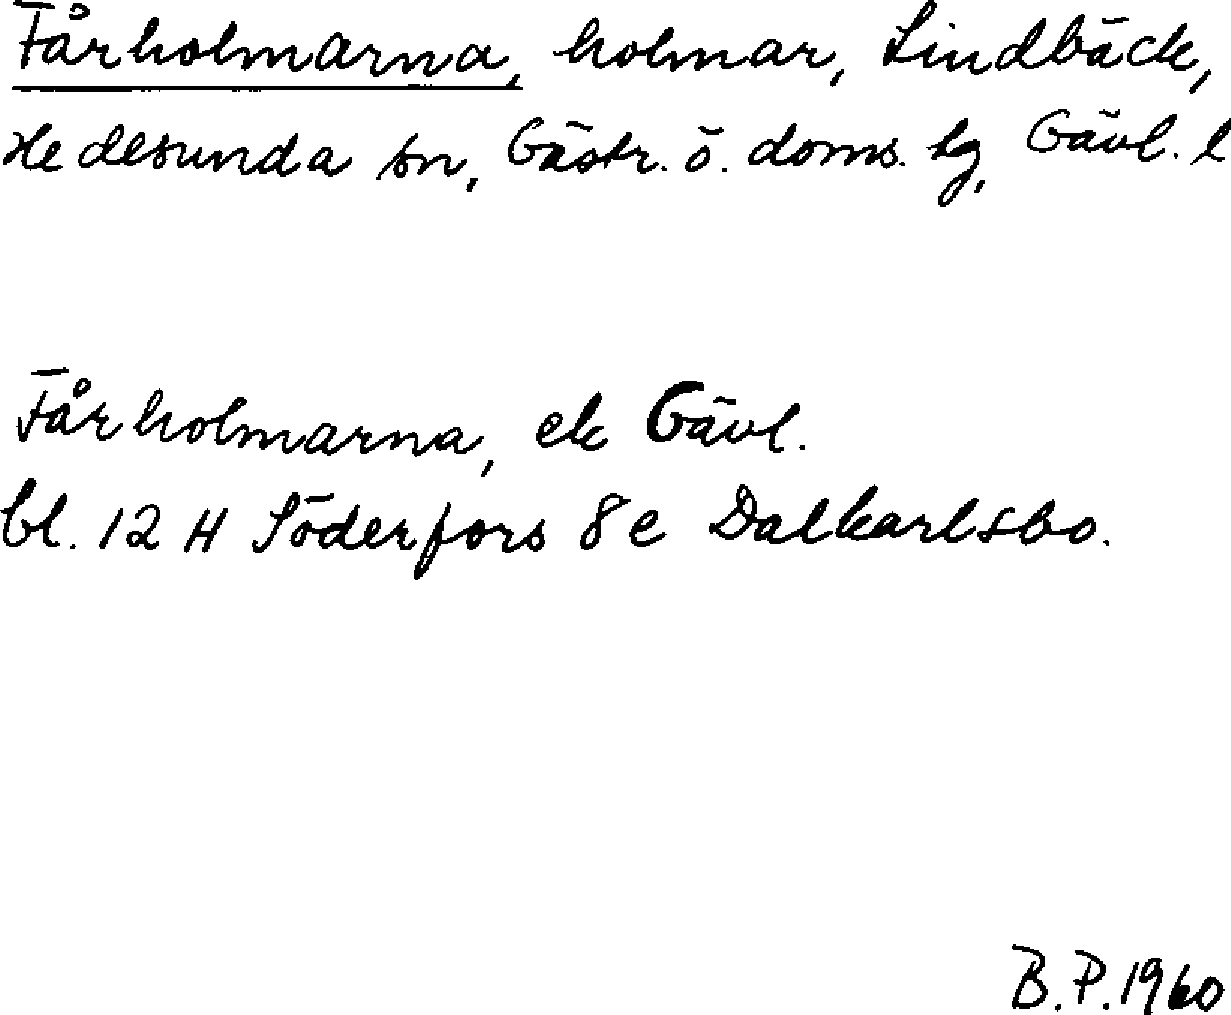 Fårholmarna, holmar, Lindbäck,
Hedesunda sn, Gästr. ö. doms. tg, Gävl. l
Fårholmarna, ek Gävl.
bl. 12 H Söderfors 8 e Dalkarlsbo.
B. P. 1960